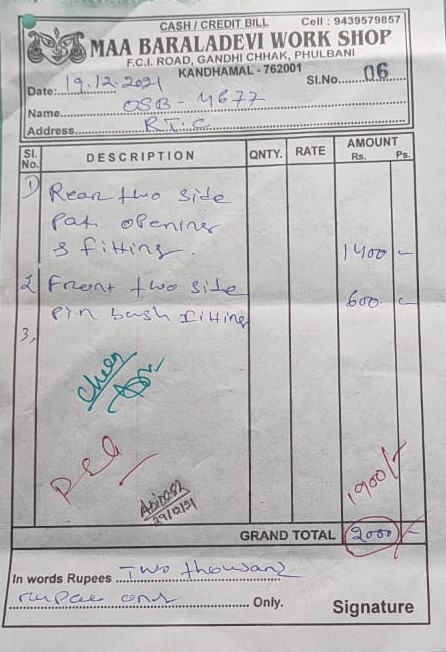 CASH / CREDIT BILL Cell : 9439579857
MAA BARALADEVI WORK SHOP
F.C.I. ROAD, GANDHI CHHAK, PHULBANI
KANDHAMAL - 762001
Date: 19.12.2021 Sl.No. 06
Name OSB-4677
Address R.T.C
Sl. No. DESCRIPTION QNTY. RATE AMOUNT Rs. Ps.
1) Rear two side
Pati opening
& fitting. 1400
2 Front two side 600
Pin bush fitting
3,
1900/-
Abinash
29/12/21
GRAND TOTAL 2000/-
In words Rupees Two thousand
rupee only Only.
Signature